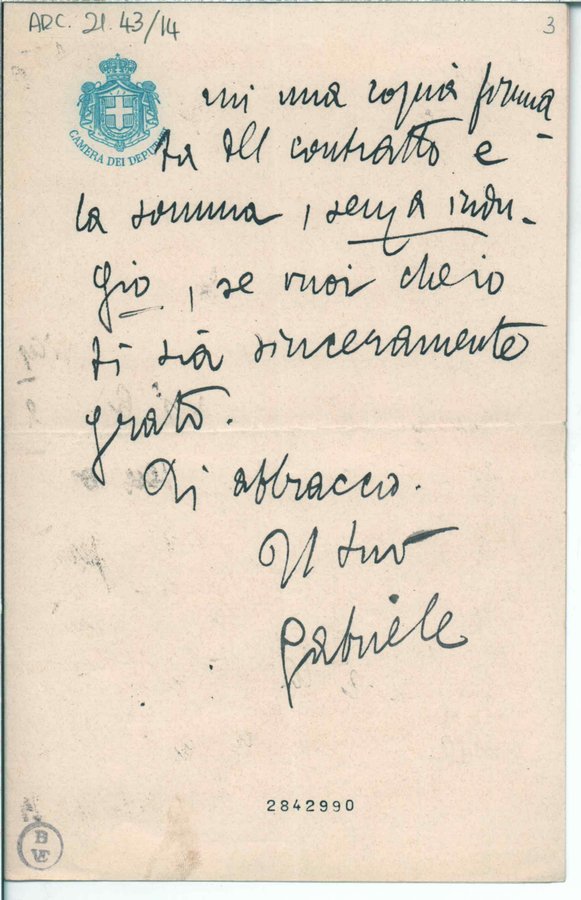 ARC. 21.43/14
3
CAMERA DEI DEPUTATI
mi una copia firma-
ta del contratto e
la somma, senza indu-
gio, se vuoi che io
ti sia sinceramente
grato.
Ti abbraccio.
Il tuo
Gabriele
2842990
B
VE